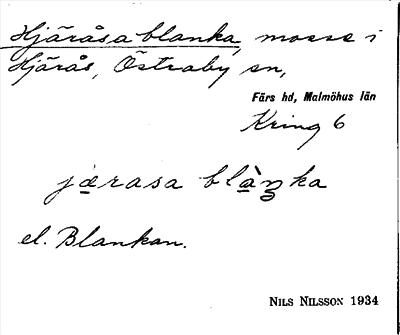 Hjäråsa blanka, mosse i
Hjärås, Östraby sn,
Färs hd, Malmöhus län
Kring 6
jæ̱rasa blà̱ŋka
el. Blankan.
NILS NILSSON 1934